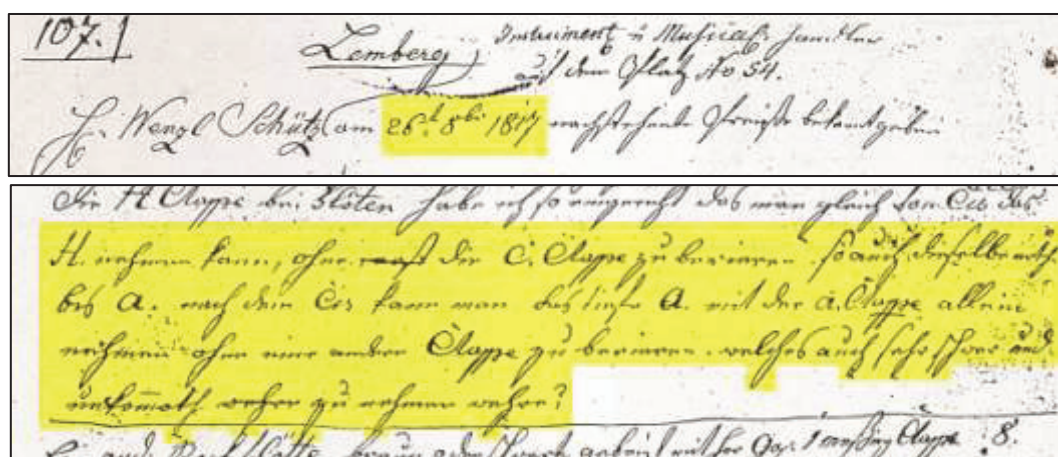 107.
Lemberg Instrument u Musical: Handler
auf dem Platz No 54.
H. Wenzl Schütz am 26t 8br 1817 nachstehende Preise bekantgeben
Die H Clappe bei Flöten habe ich so eingericht das man gleich vom Cis das
H. nehmen kann, ohne die C. Clappe zu berieren so auch dieselbe
bis A. nach dem Cis kann man das tiefe A. mit der A. Clappe allein
nehmen ohne eine ander Clappe zu berieren. welches auch sehr schwer und
unkomoth weher zu nehmen wehre!
mit 1 Clappe 8.